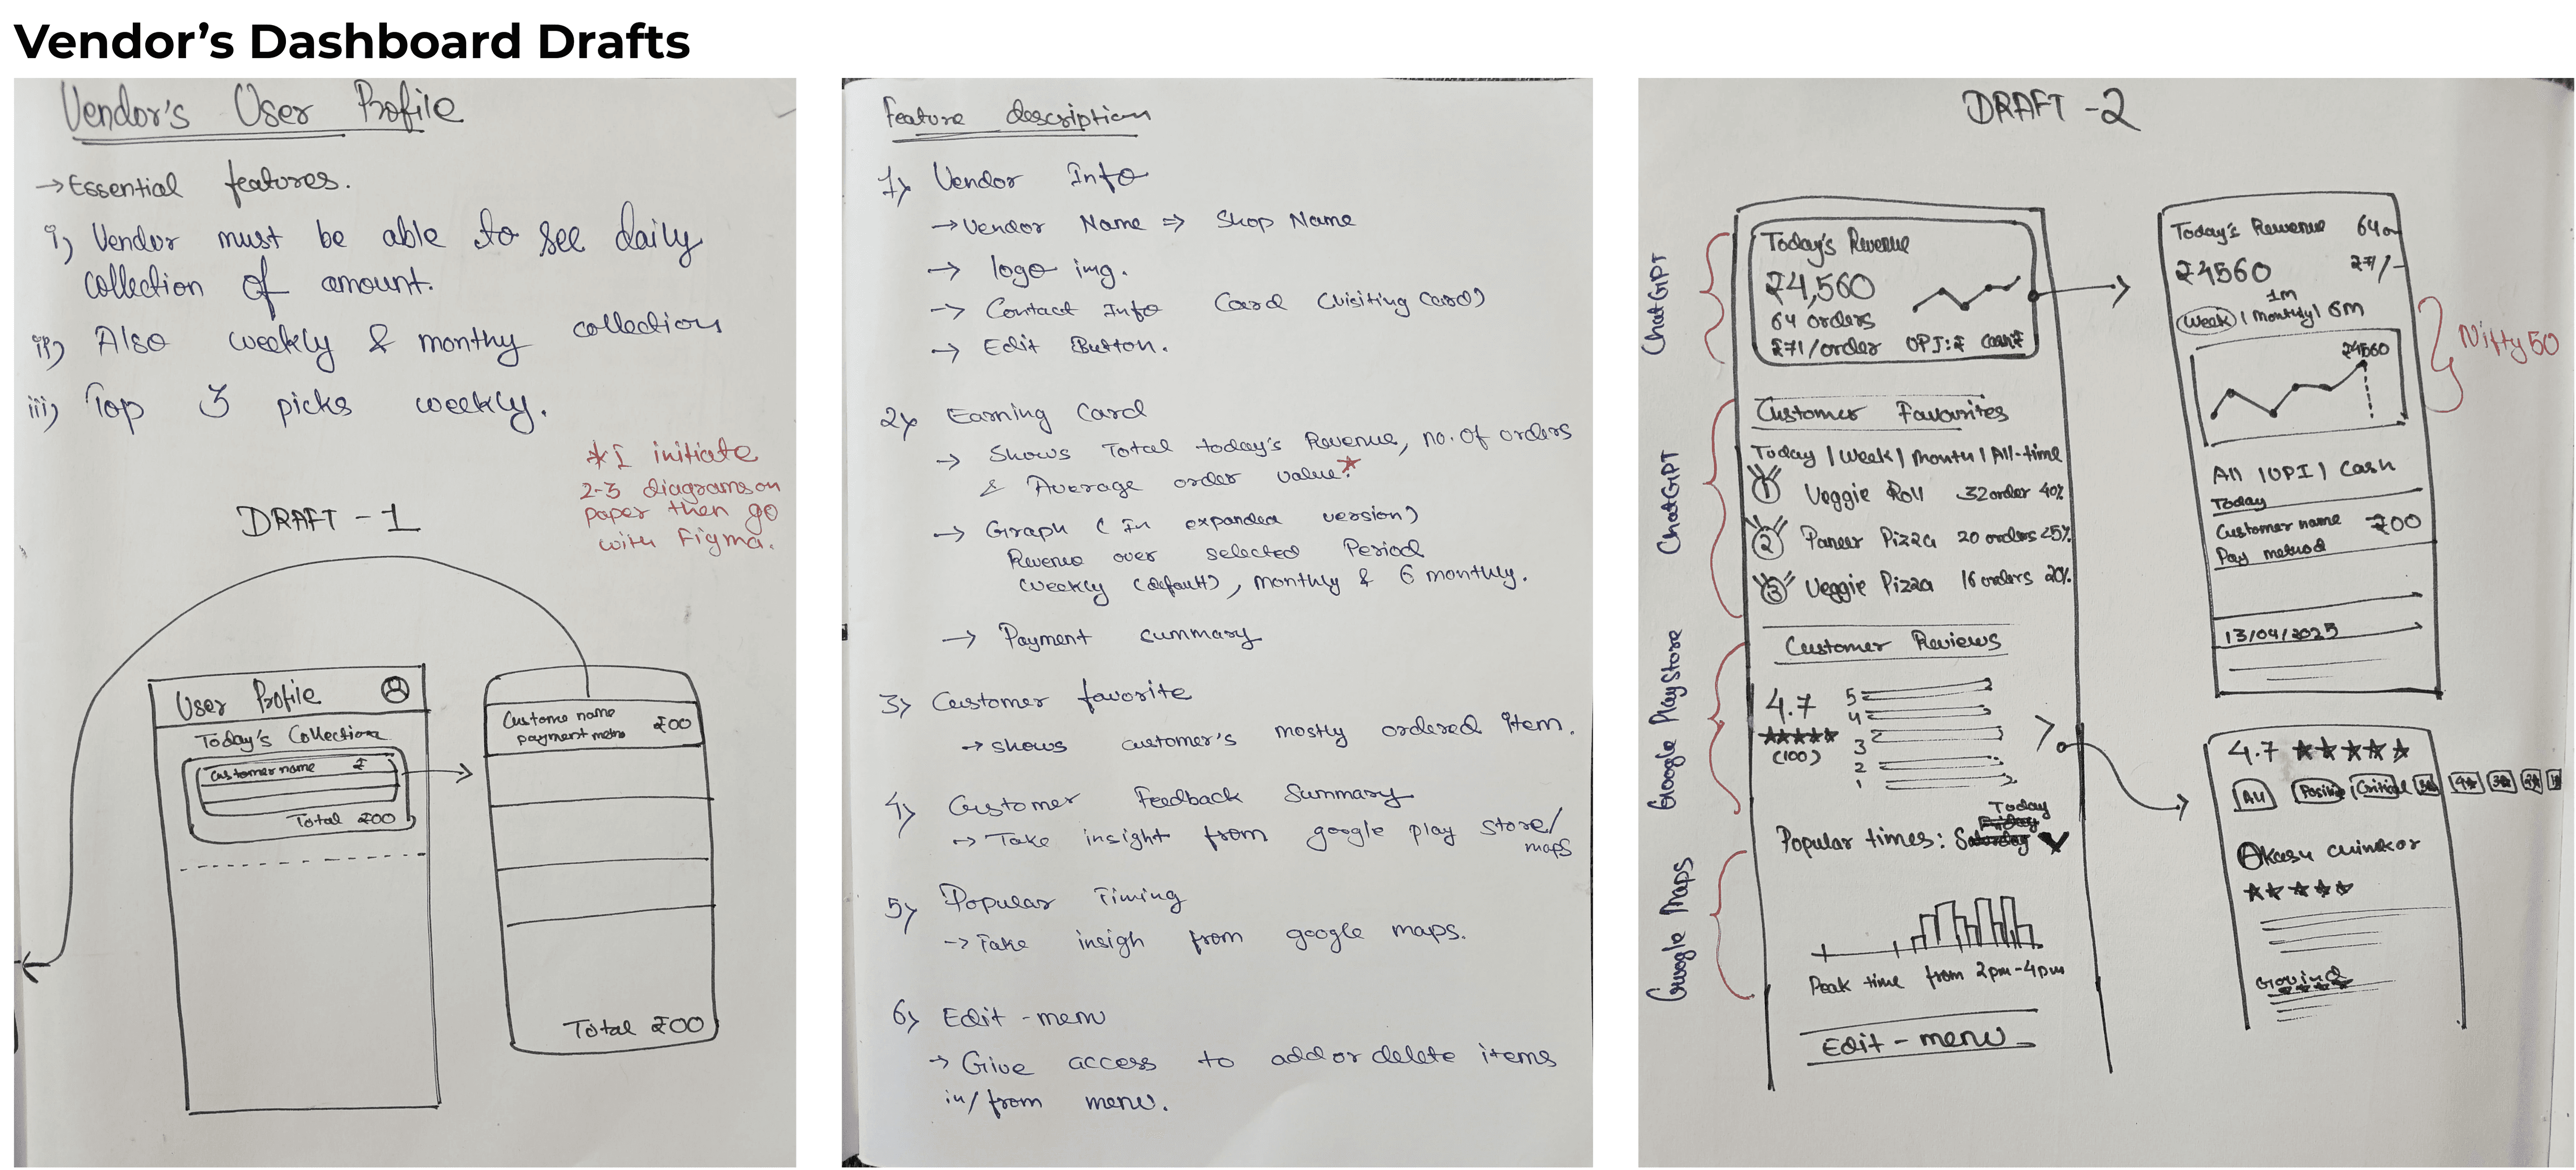 Vendor's Dashboard Drafts
Vendor's User Profile
→ Essential features.
i) Vendor must be able to see daily
collection of amount.
ii) Also weekly & monthy collection
iii) Top 3 picks weekly.
*I initiate
2-3 diagrams on
paper then go
with Figma.
DRAFT - 1
User Profile
Today's Collection
Customer name ₹
Total ₹00
Custome name ₹00
payment metho
Total ₹00
Feature description
1) Vendor Info
→ Vendor Name ⇒ Shop Name
→ logo img.
→ Contact Info Card (Visiting Card)
→ Edit Button.
2) Earning Card
→ Shows Total today's Revenue, no. of orders
& Average order value.*
→ Graph (In expanded version)
Revenue over selected Period
Weekly (default), monthly & 6 monthly.
→ Payment summary
3) Customer favorite
→ shows customer's mostly ordered item.
4) Customer Feedback Summary
→ Take insight from google play store/
maps
5) Popular Timing
→ Take insigh from google maps.
6) Edit - menu
→ Give access to add or delete items
in/from menu.
DRAFT - 2
ChatGPT
Today's Revenue
₹4,560
64 orders
₹71/order UPI:₹ Cash:₹
ChatGPT
Customer Favourites
Today | Week | Month | All-time
1 Veggie Roll 32 order 40%
2 Paneer Pizza 20 orders 25%
3 Veggie Pizza 16 orders 20%
Google PlayStore
Customer Reviews
4.7
★★★★★
(100)
5
4
3
2
1
Google Maps
Today
Popular times:
Peak time from 2pm-4pm
Edit - menu
Today's Revenue 64
₹4560 ₹71/-
1m
Week | Monthly | 6m
Nifty 50
₹4560
All | UPI | Cash
Today
Customer name ₹00
Pay method
13/04/2025
4.7 ★★★★★
All Positive Critical 5★ 4★ 3★ 2★ 1
Akash
★★★★★
Govind
★★★★